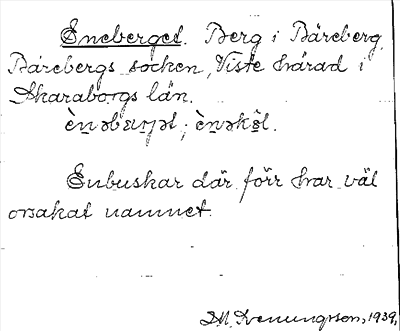 Eneberget. Berg i Bäreberg,
Bärebergs socken, Viste härad i
Skaraborgs län.
Enbuskar där förr har väl
orsakat namnet.
1939.